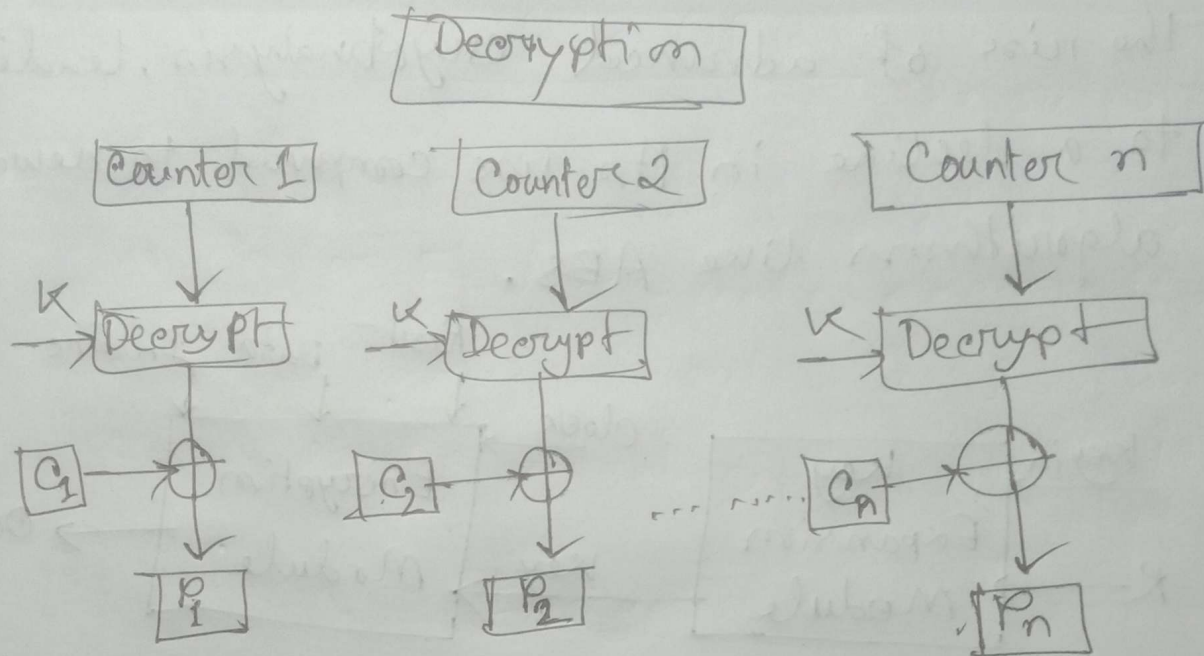 Decryption
Counter 1 Counter 2 Counter n
K K K
Decrypt Decrypt Decrypt
C1 C2 ........ Cn
P1 P2 Pn